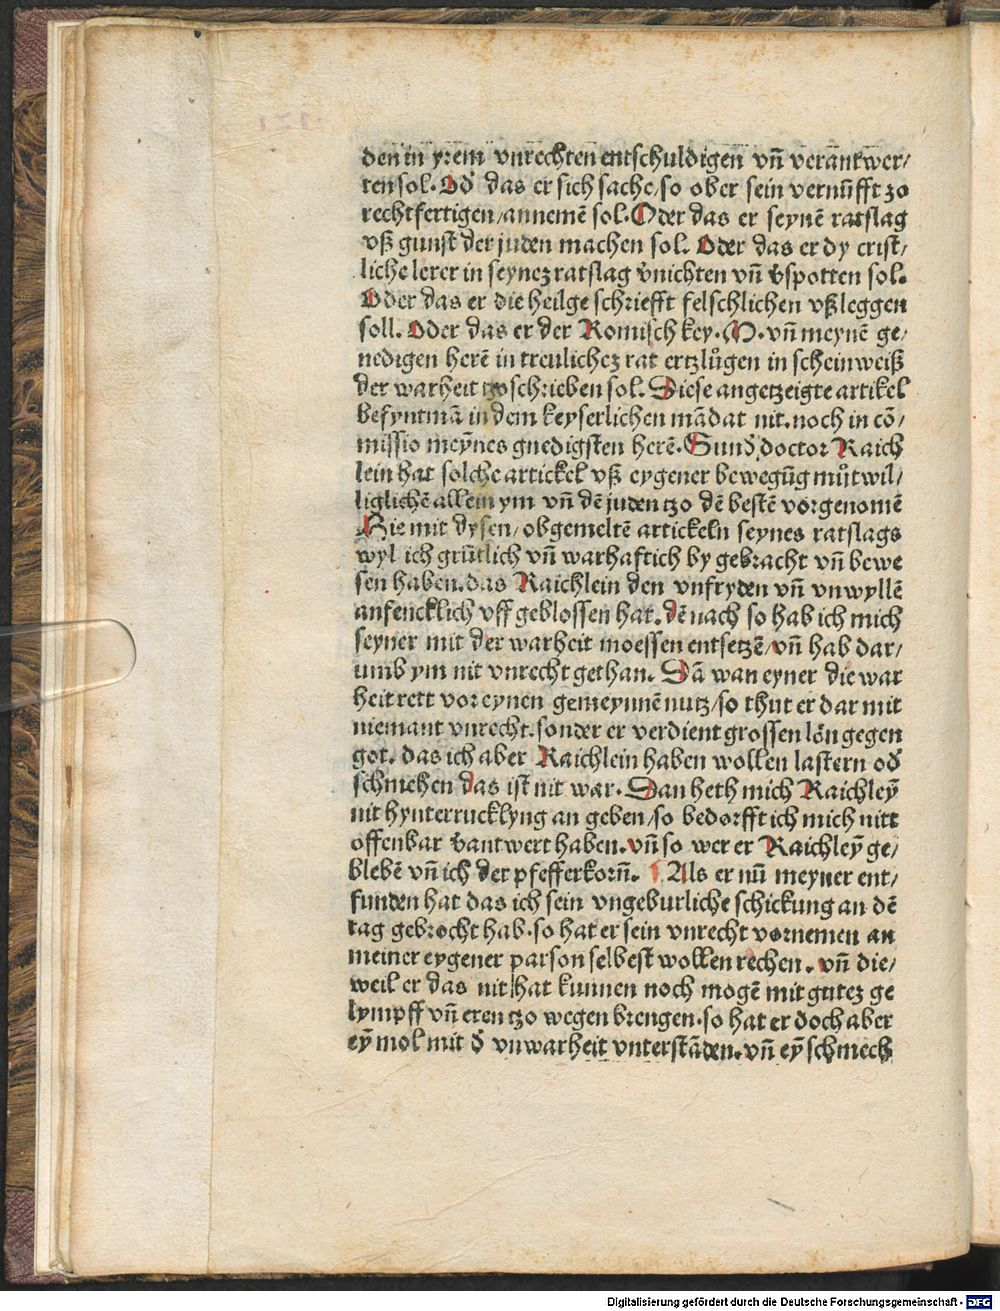 den in yrem vnrechten entschuldigen vn̄ verantwer/
ten sol. Od̕ das er sich sache/so ober sein vernūfft zo
rechtfertigen/annemē sol. Oder das er seynē ratslag
vß gunst der juden machen sol. Oder das er dy crist/
liche lerer in seynez ratslag v̕nichten vn̄ v̕spotten sol.
Oder das er die heilge schriefft felschlichen vßleggen
soll. Oder das er der Romisch key. M. vn̄ meynē ge/
nedigen herē in treulichez rat ertzlůgen in scheinweiß
der warheit tzoschrieben sol. Diese angetzeigte artikel
befyntmā in dem keyserlichen mādat nit. noch in cō/
missio meȳnes gnedigsten herē. Sund̕ doctor Raich
lein hat solche artickel vß eygener bewegūg můtwil/
liglichē allein ym vn̄ dē juden tzo dē bestē vorgenomē
Hie mit dysen/obgemeltē artickeln seynes ratslags
wyl ich grūtlich vn̄ warhaftich by gebracht vn̄ bewe
sen haben. das Raichlein den vnfryden vn̄ vnwyllē
anfencklich vff geblossen hat. dē nach so hab ich mich
seyner mit der warheit moessen entsetzē/vn̄ hab dar/
umb ym nit vnrecht gethan. Dā wan eyner die war
heit rett vor eynen gemeynnē nutz/so thut er dar mit
niemant vnrecht. sonder er verdient grossen lōn gegen
got. das ich aber Raichlein haben wollen lastern od̕
schmehen das ist nit war. Dan heth mich Raichleȳ
nit hynterrucklyng an geben/so bedorfft ich mich nitt
offenbar v̕antwert haben. vn̄ so wer er Raichleȳ ge/
blebē vn̄ ich der pfefferkorn̄. Als er nū meyner ent/
funden hat das ich sein vngeburliche schickung an dē
tag gebrocht hab. so hat er sein vnrecht vornemen an
meiner eygener parson selbest wollen rechen. vn̄ die/
weil er das nit hat kunnen noch mogē mit gutez ge
lympff vn̄ eren tzo wegen brengen. so hat er doch aber
eȳ mol mit d̕ vnwarheit vnterstāden. vn̄ eȳ schmech
Digitalisierung gefördert durch die Deutsche Forschungsgemeinschaft - DFG